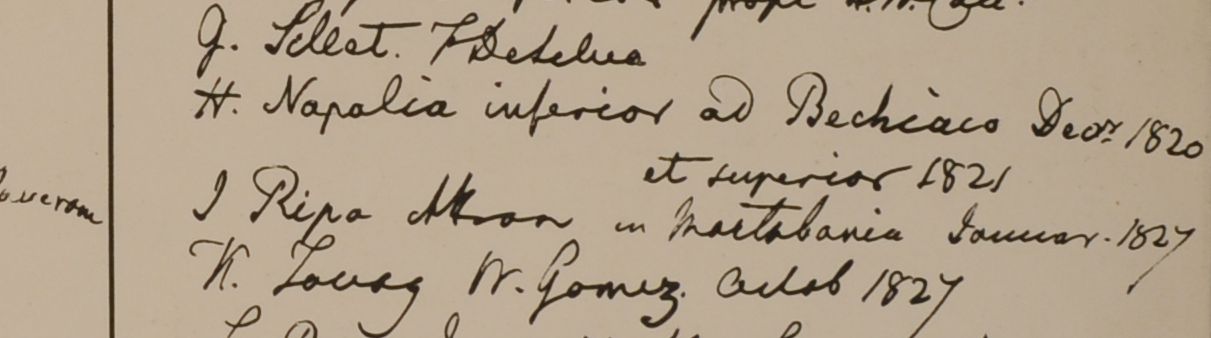 prope
G. Sillet. F Desilva
H. Napalia inferior ad Bechiaco Decr. 1820
et superior 1821
I Ripa Attran in Martabania Januar. 1827
K. Tavoy W. Gomez. Octob 1827